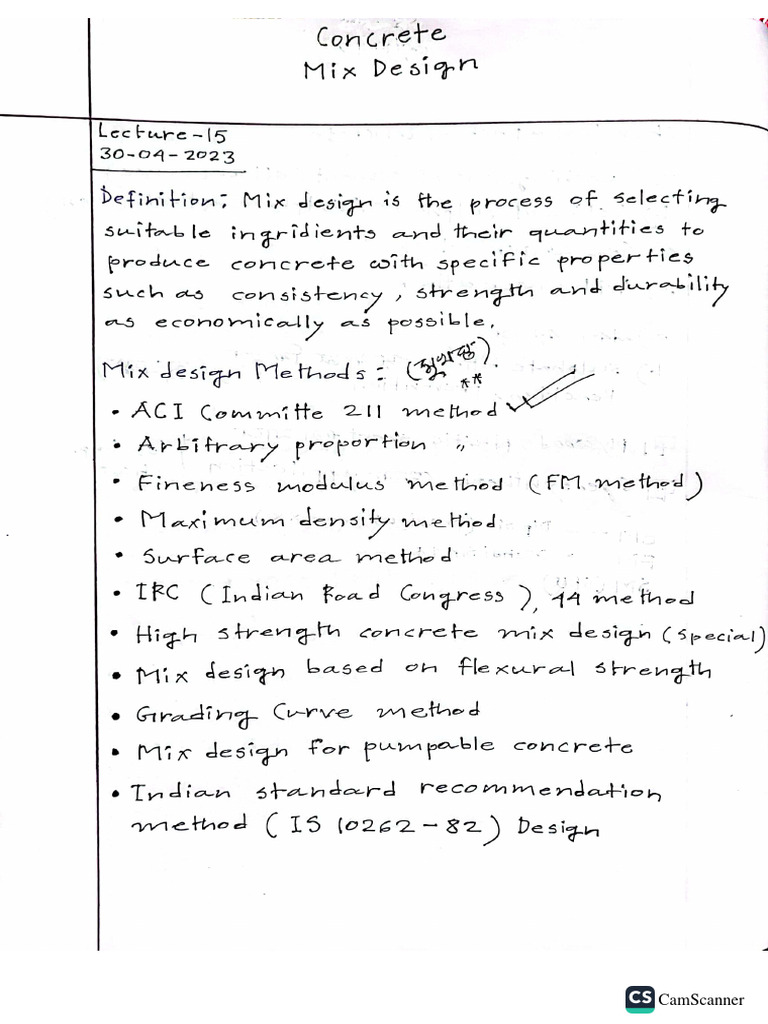 Concrete
Mix Design
Lecture-15
30-04-2023
Definition: Mix design is the process of selecting
suitable ingridients and their quantities to
produce concrete with specific properties
such as consistency, strength and durability
as economically as possible.
Mix design Methods:
**
• ACI Committe 211 method ✓
• Arbitrary proportion "
• Fineness modulus method (FM method)
• Maximum density method
• Surface area method
• IRC (Indian Road Congress), 44 method
• High strength concrete mix design (special)
• Mix design based on flexural strength
• Grading Curve method
• Mix design for pumpable concrete
• Indian standard recommendation
method (IS 10262-82) Design
CS CamScanner